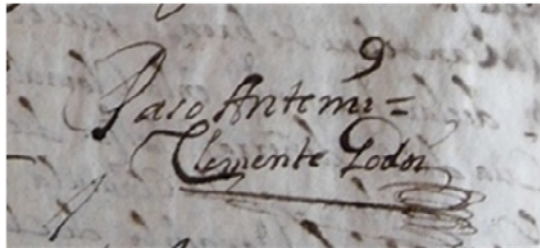 Paso Antemi =
Clemente Godoi